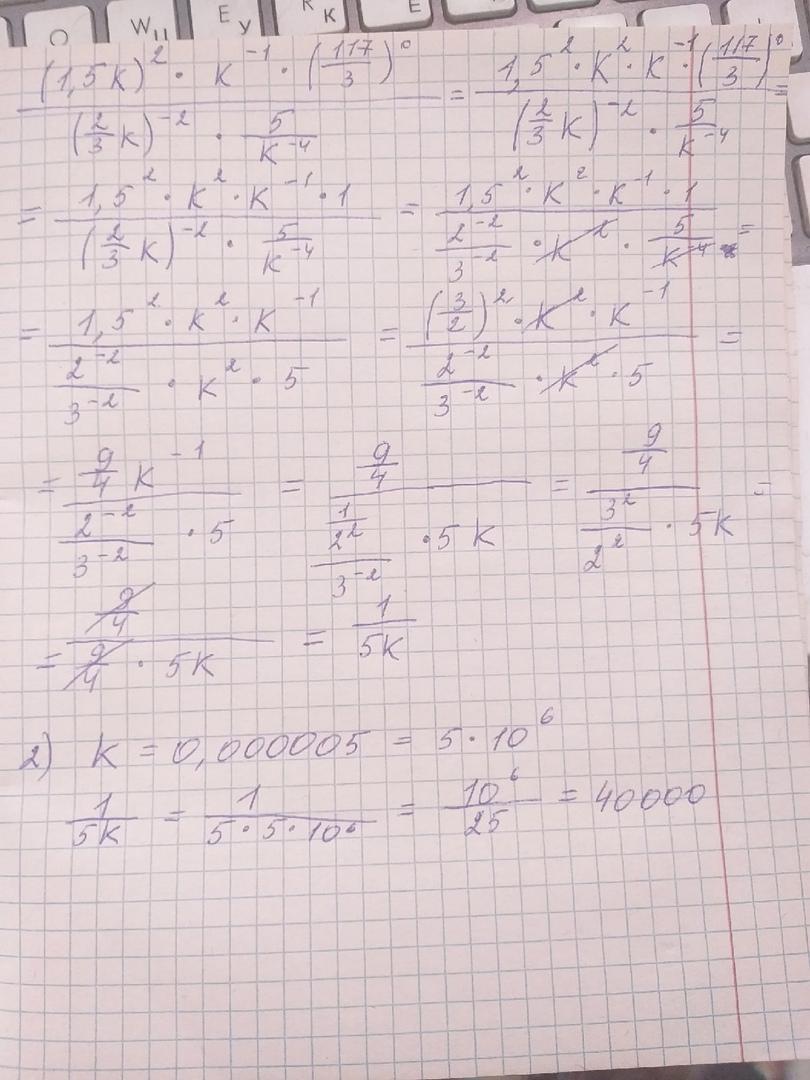 О W Ц Е У R К Е
(1,5k)² · k⁻¹ · (117/3)⁰ / ((2/3 k)⁻² · 5/k⁻⁴) = 1,5² · k² · k⁻¹ (117/3)⁰ / ((2/3 k)⁻² · 5/k⁻⁴) =
= 1,5² · k² · k⁻¹ · 1 / ((2/3 k)⁻² · 5/k⁻⁴) = 1,5² · k² · k⁻¹ · 1 / (2⁻²/3⁻² · k⁻² · 5/k⁻⁴) =
= 1,5² · k² · k⁻¹ / (2⁻²/3⁻² · k² · 5) = (3/2)² · k² · k⁻¹ / (2⁻²/3⁻² · k² · 5) =
= 9/4 k⁻¹ / (2⁻²/3⁻² · 5) = 9/4 / ((1/2²)/3⁻² · 5k) = 9/4 / (3²/2² · 5k) =
= 9/4 / (9/4 · 5k) = 1/5k
2) k = 0,000005 = 5 · 10⁶
1/5k = 1/(5 · 5 · 10⁶) = 10⁶/25 = 40000